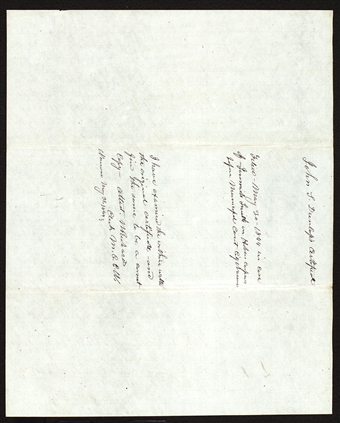 John S. Dunlap's Certificate
Filed May 30 1844 in case
of Jeremiah Smith on Habeas corpus
before Municipal Court
I have examined the within with
the original certificate and
find the same to be a correct
copy
Clerk M. C. C. N.